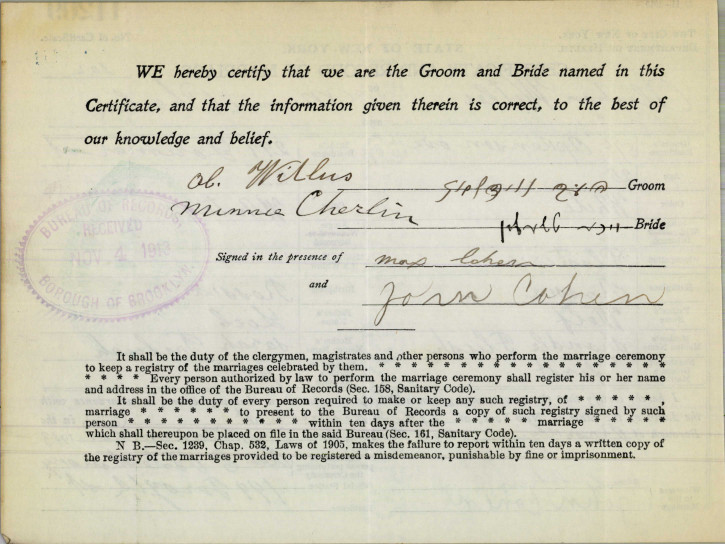 WE hereby certify that we are the Groom and Bride named in this
Certificate, and that the information given therein is correct, to the best of
our knowledge and belief.
Ob. Witlus
Groom
Minnie Cherlin
Bride
BUREAU OF RECORDS
RECEIVED
NOV. 4
BOROUGH OF BROOKLYN
Signed in the presence of max Cohen
and John Cohen
It shall be the duty of the clergymen, magistrates and other persons who perform the marriage ceremony
to keep a registry of the marriages celebrated by them. * * * * * * * * * * * * * * * * *
* * * * Every person authorized by law to perform the marriage ceremony shall register his or her name
and address in the office of the Bureau of Records (Sec. 158, Sanitary Code).
It shall be the duty of every person required to make or keep any such registry, of * * * * * ,
marriage * * * * * * to present to the Bureau of Records a copy of such registry signed by such
person * * * * * * * * * * * within ten days after the * * * * * marriage * * * * *
which shall thereupon be placed on file in the said Bureau (Sec. 161, Sanitary Code).
N B.—Sec. 1239, Chap. 532, Laws of 1905, makes the failure to report within ten days a written copy of
the registry of the marriages provided to be registered a misdemeanor, punishable by fine or imprisonment.